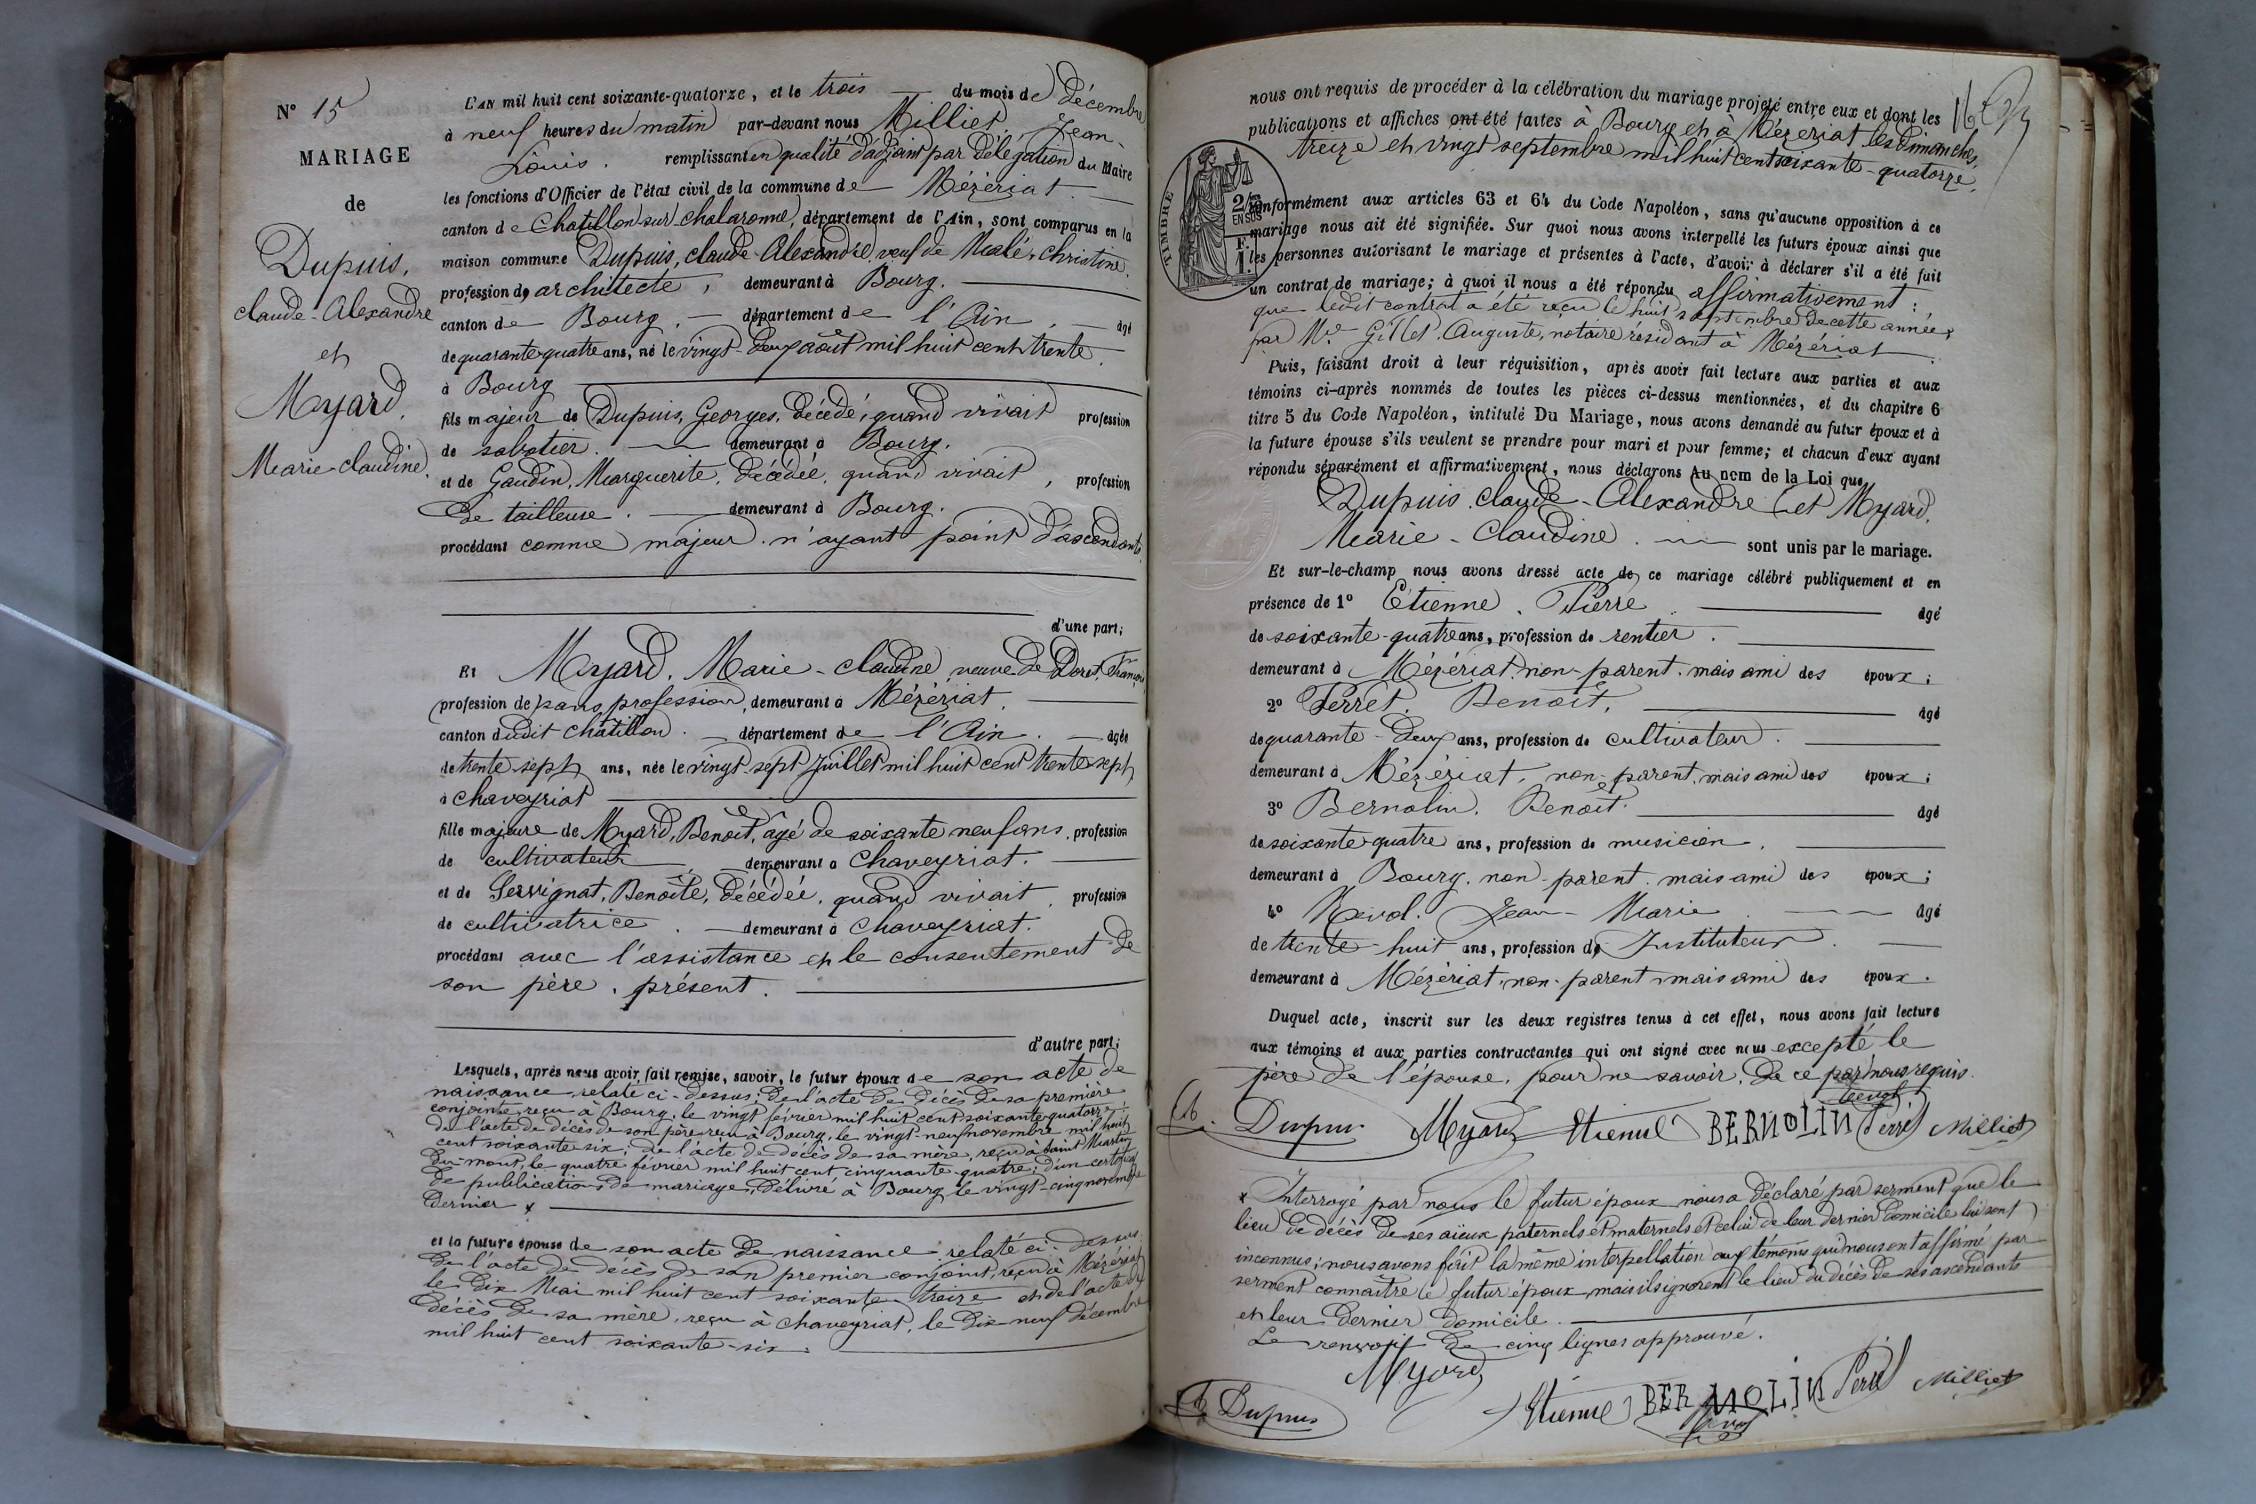 N° 15
MARIAGE
de
Dupuis,
claude-Alexandre
et
Myard,
Marie-claudine.
L'AN mil huit cent soixante-quatorze, et le trois du mois de Décembre
à neuf heures du matin par-devant nous Milliet, Jean-
Louis. remplissant en qualité d'adjoint par délégation du Maire
les fonctions d'Officier de l'état civil de la commune de Mézériat
canton de Chatillon sur chalaronne, département de l'Ain, sont comparus en la
maison commune Dupuis, claude Alexandre, veuf de Malé, christine.
profession de architecte, demeurant à Bourg.
canton de Bourg. département de l'Ain. âgé
de quarante quatre ans, né le vingt-deux août mil huit cent trente.
à Bourg
fils majeur de Dupuis, Georges, décédé, quand vivait profession
de sabotier. demeurant à Bourg.
et de Gaudin, Marguerite, décédée, quand vivait, profession
de tailleuse. demeurant à Bourg.
procédant comme majeur n'ayant point d'ascendants
d'une part;
Et Myard, Marie-claudine, veuve de Doret, Franç
profession de sans profession, demeurant à Mézériat.
canton dudit Châtillon. département de l'Ain. âgée
de trente sept ans, née le vingt-sept Juillet mil huit cent trente-sept,
à chaveyriat
fille majeure de Myard, Benoît, âgé de soixante neuf ans, profession
de cultivateur demeurant à chaveyriat.
et de Servignat, Benoîte, décédée, quand vivait, profession
de cultivatrice. demeurant à chaveyriat.
procédant avec l'assistance et le consentement de
son père, présent.
d'autre part;
Lesquels, après nous avoir fait remise, savoir, le futur époux de son acte de
naissance, relaté ci-dessus; de l'acte de décès de sa première
conjointe, reçu à Bourg, le vingt février mil huit cent soixante-quatorze;
de l'acte de décès de son père reçu à Bourg, le vingt-neuf novembre mil huit
cent soixante six; de l'acte de décès de sa mère, reçu à Saint Martin
du-mont, le quatre février mil huit cent cinquante-quatre; d'un certificat
de publications de mariage, délivré à Bourg le vingt-cinq novembre
dernier x
et la future épouse de son acte de naissance, relaté ci-dessus.
de l'acte de décès de son premier conjoint, reçu à Mézériat
le dix Mai mil huit cent soixante treize et de l'acte de
décès de sa mère, reçu à chaveyriat, le dix neuf décembre
mil huit cent soixante-six.
nous ont requis de procéder à la célébration du mariage projeté entre eux et dont les
publications et affiches ont été faites à Bourg et à Mézériat les Dimanches
treize et vingt septembre mil huit cent soixante-quatorze.
TIMBRE
2/10
EN SUS
F.
1.
conformément aux articles 63 et 64 du Code Napoléon, sans qu'aucune opposition à ce
mariage nous ait été signifiée. Sur quoi nous avons interpellé les futurs époux ainsi que
les personnes autorisant le mariage et présentes à l'acte, d'avoir à déclarer s'il a été fait
un contrat de mariage; à quoi il nous a été répondu affirmativement:
que ledit contrat a été reçu le huit septembre de cette année,
par Me Gillet, Auguste, notaire résidant à Mézériat
Puis, faisant droit à leur réquisition, après avoir fait lecture aux parties et aux
témoins ci-après nommés de toutes les pièces ci-dessus mentionnées, et du chapitre 6
titre 5 du Code Napoléon, intitulé Du Mariage, nous avons demandé au futur époux et à
la future épouse s'ils veulent se prendre pour mari et pour femme; et chacun d'eux ayant
répondu séparément et affirmativement, nous déclarons Au nom de la Loi que
Dupuis, claude-Alexandre et Myard,
Marie-Claudine. sont unis par le mariage.
Et sur-le-champ nous avons dressé acte de ce mariage célébré publiquement et en
présence de 1° Etienne, Pierre. âgé
de soixante-quatre ans, profession de rentier.
demeurant à Mézériat, non-parent, mais ami des époux;
2° Perret, Benoît, âgé
de quarante-deux ans, profession de cultivateur.
demeurant à Mézériat, non-parent, mais ami des époux;
3° Bernolin, Benoît. âgé
de soixante-quatre ans, profession de musicien.
demeurant à Bourg, non-parent, mais ami des époux;
4° Revol, Jean-Marie. âgé
de trente-huit ans, profession de Instituteur.
demeurant à Mézériat, non-parent mais ami des époux.
Duquel acte, inscrit sur les deux registres tenus à cet effet, nous avons fait lecture
aux témoins et aux parties contractantes qui ont signé avec nous excepté le
père de l'épouse, pour ne savoir, de ce par nous requis.
Revol
Dupuis Myard Etienne BERNOLIN Perret Milliet
x Interrogé par nous le futur époux nous a déclaré par serment que le
lieu de décès de ses aïeux paternels et maternels et celui de leur dernier domicile lui sont
inconnus; nous avons fait la même interpellation aux témoins qui nous ont affirmé par
serment connaître le futur époux mais ils ignorent le lieu du décès de ses ascendants
et leur dernier domicile.
Le renvoi de cinq lignes approuvé.
Myard
Dupuis Etienne BERNOLIN Perret Milliet
Revol